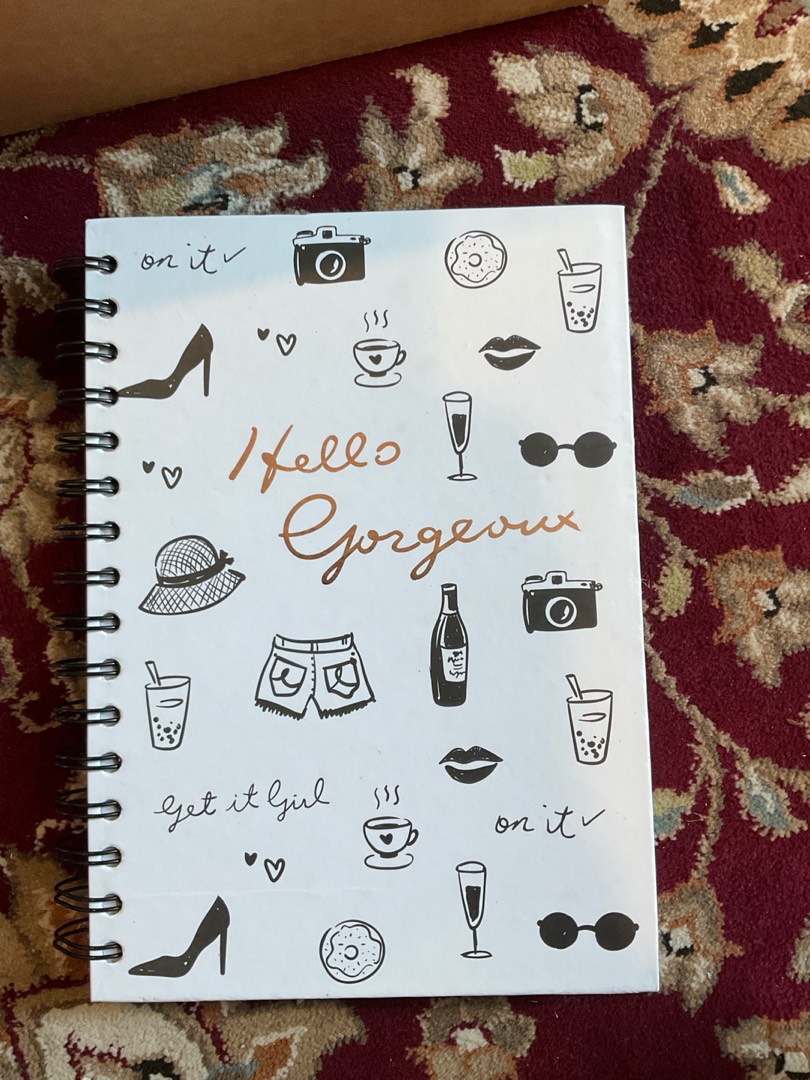 on it
Hello
Gorgeous
Get it Girl
on it